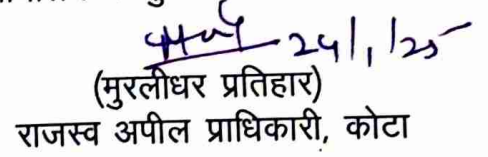 24/1/25
(मुरलीधर प्रतिहार)
राजस्व अपील प्राधिकारी, कोटा